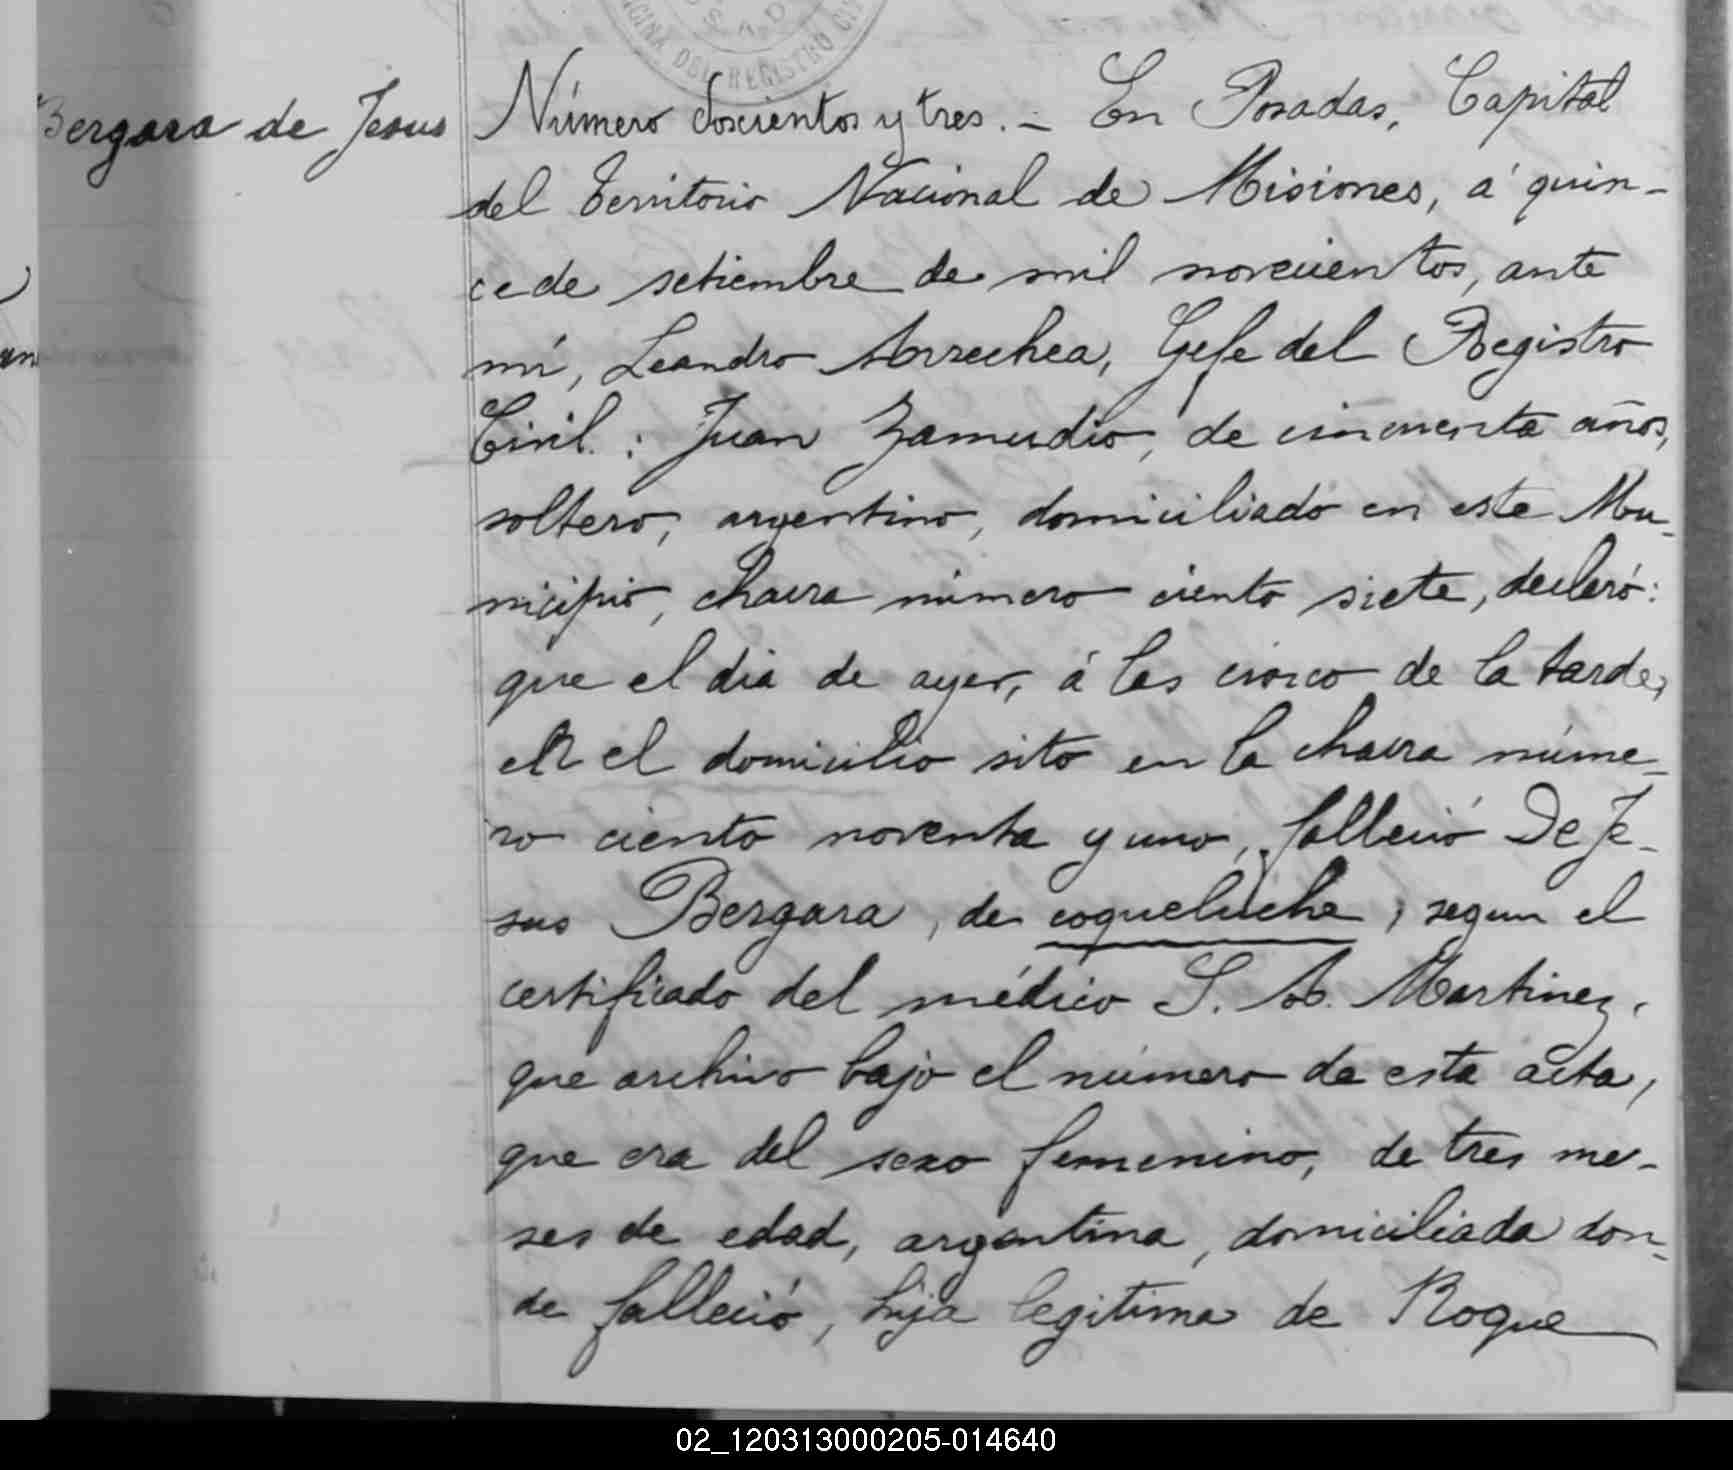 OFICINA DEL REGISTRO CI
Bergara de Jesus
Número doscientos y tres. – En Posadas, Capital
del Territorio Nacional de Misiones, á quin-
ce de setiembre de mil novecientos, ante
mí, Leandro Arrechea, Gefe del Registro
Civil. : Juan Zamudio, de cincuenta años,
soltero, argentino, domiciliado en este Mu-
nicipio, chacra número ciento siete, declaró:
que el dia de ayer, á las cinco de la tarde,
en el domicilio sito en la chacra núme-
ro ciento noventa y uno, falleció De Je-
sus Bergara, de coqueluche, segun el
certificado del médico S. A. Martinez,
que archivo bajo el número de esta acta,
que era del sexo femenino, de tres me-
ses de edad, argentina, domiciliada don-
de falleció, hija legitima de Roque
02_120313000205-014640